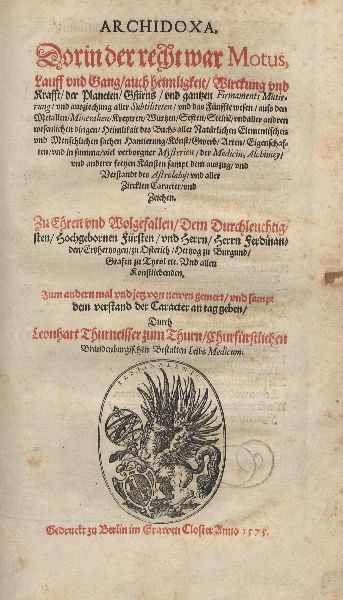 ARCHIDOXA.
Dorin der recht war Motus,
Lauff vnd Gang/auch heimligkeit/Wirckung vnd
Krafft/der Planeten/Gstirns/vnd gantzen Firmaments Mutie-
rung/vnd ausziechung aller Subtiliteten/vnd das Fünffte wesen/auss den
Metallen/Mineralien/Kreyttern/Wurtzen/Sefften/Steinē/vnd aller andren
wesenlichen dingen/Heimlikeit des Buchs aller Natürlichen Elementischen
vnd Menschlichen sachen Hantierung/Künst/Gwerb/Arten/Eigenschaf-
ten/vnd in summa/viel verborgner Mysterien/der Medicin, Alchimey/
vnd anderer freyen Künsten sampt dem auszug/vnd
Verstandt des Astrolabij/vnd aller
Zircklen Caracter/vnd
Zeichen.
Zu Ehren vnd Wolgefallen/Dem Durchleuchtig-
sten/Hochgebornen Fürsten/vnd Herrn/Herrn Ferdinan-
den/Ertzhertzogen/zu Osterich/Hertzog zu Burgund/
Grafen zu Tyrol etc. Vnd allen
Konstliebenden.
Zum andern mal vnd jetz von newen gemert/vnd sampt
dem verstand der Caracter an tag geben/
Durch
Leonhart Thurneisser zum Thurn/Churfürstlichen
Brandenburgischen Bestalten Leibs Medicum.
Gedruckt zu Berlin im Grawen Closter Anno 1575.